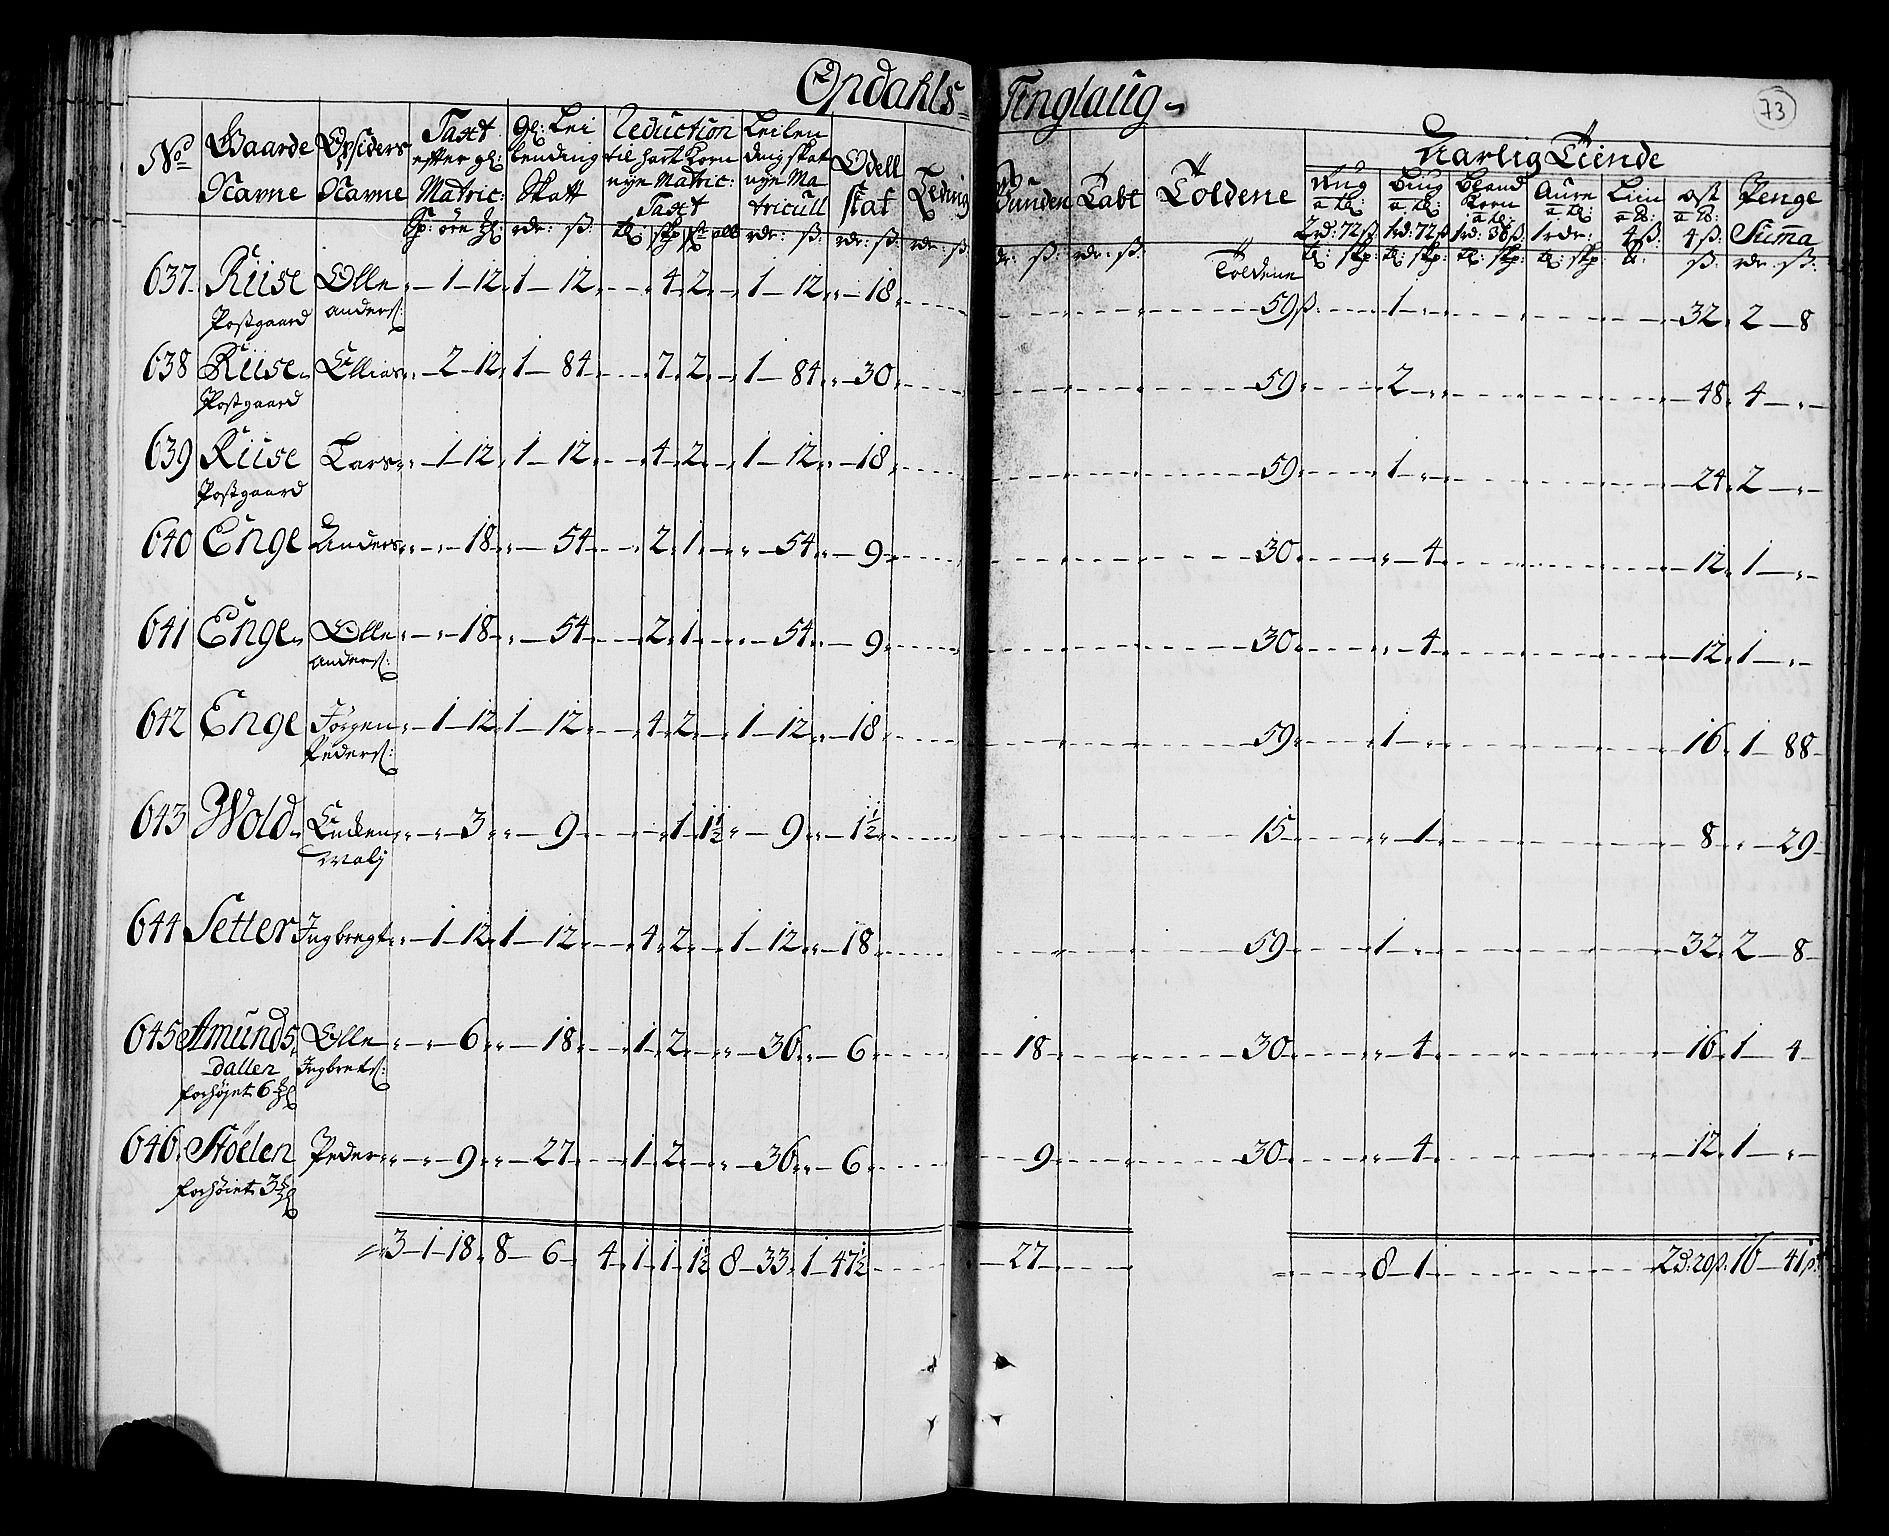 Opdahls Tinglaug
73
No Gaarde Navne Opsiders Navne Taxt efter gl: Matric: Gl: Leilending Skatt Reduction til hart Korn nye Matric: Taxt Leilendingskat nye Matricull Odell skat Leding Bunden Labt Toldene Aarlig Tiende
Rug a tl: 2rd: 72ß Bug a tl: 1rd: 72ß Bland Korn a tl: 1rd: 38ß Aure a tl: 1rdr: Liin 4ß: ost 4ß: Penge Suma
637 Riise Olle 1 12 1 12 4 2 1 12 18 59ß 1 32 2 8
Postgaard anders:
638 Riise Ellias 2 12 1 84 7 2 1 84 30 59 2 48 4
Postgaard
639 Riise Lars 1 12 1 12 4 2 1 12 18 59 1 24 2
Postgaard
640 Enge Anders 18 54 2 1 54 9 30 4 12 1
641 Enge Olle 18 54 2 1 54 9 30 4 12 1
anders:
642 Enge Jörgen 1 12 1 12 4 2 1 12 18 59 1 16 1 88
Peders:
643 Wold 3 9 1 1½ 9 1½ 15 1 8 29
644 Setter Ingbregt 1 12 1 12 4 2 1 12 18 59 1 32 2 8
645 Amunds Olle 6 18 1 2 36 6 18 30 4 16 1 4
dallen Ingbrets:
forhöjet 6
646 Stöelen Peder 9 27 1 2 36 6 9 30 4 12 1
forhöiet 3
3 1 18 8 6 4 1 1 1½ 8 33 1 47½ 27 8 1 2 20ß 16 41ß